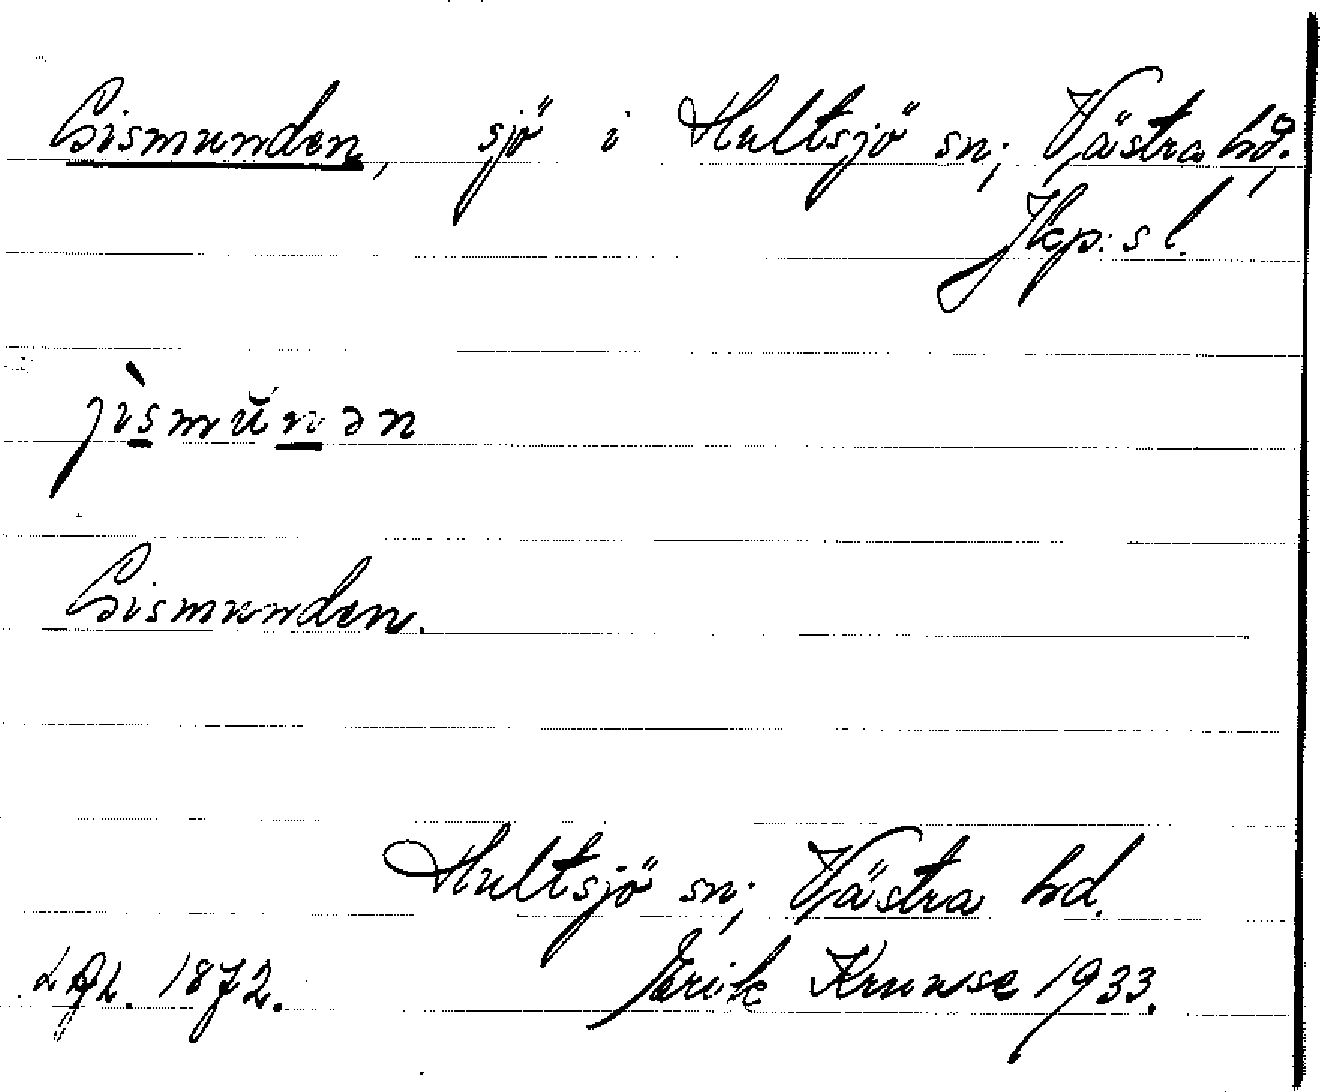 Gismunden, sjö i Hultsjö sn; Västra hd;
Jkp:s l.
jìsmŭnən
Gismunden.
Hultsjö sn; Västra hd.
1872. Erik Kruuse 1933.